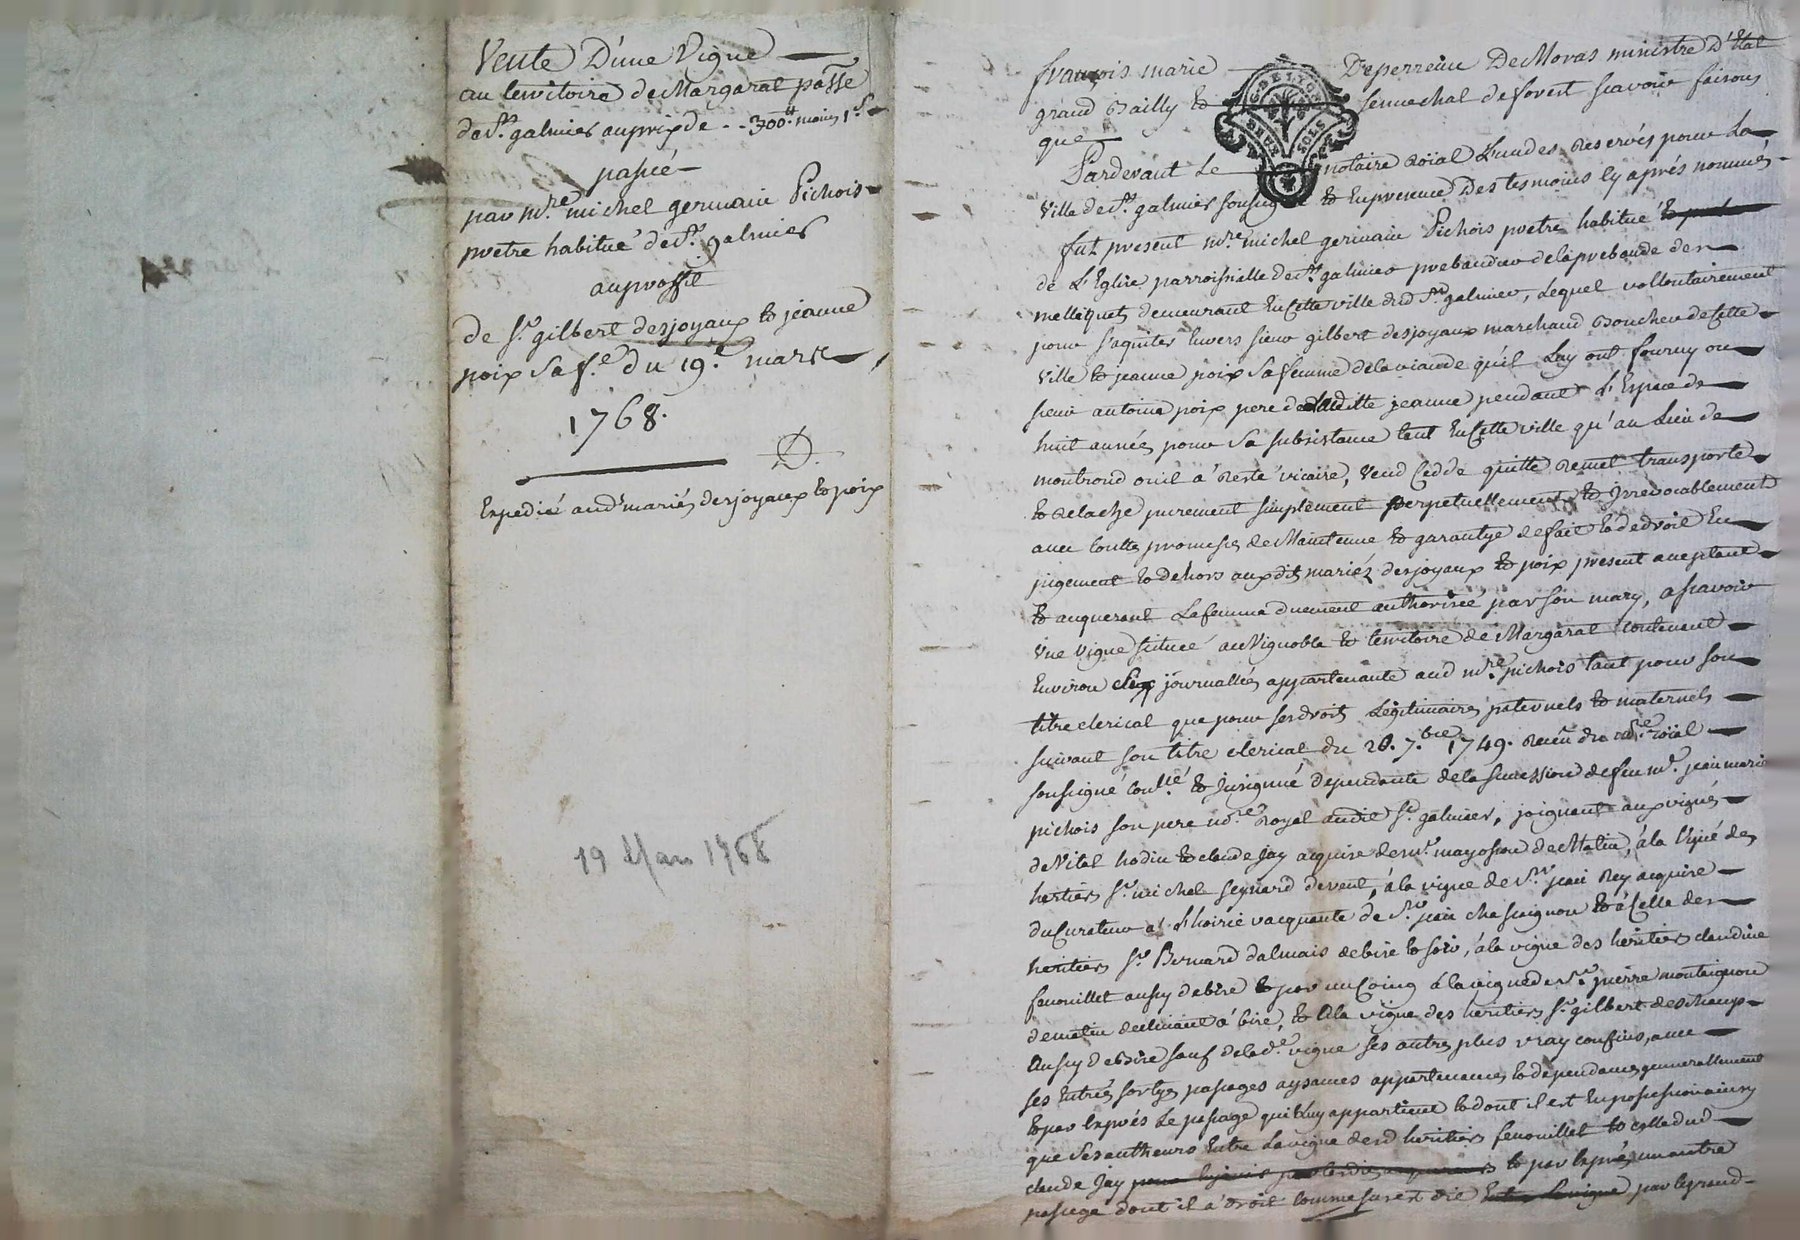 Vente D'une Vigne
au territoire de Margarat passé
de St. galmier au prix de .. 300tt moins 1s
passée
par mre. michel germain Pichois
pretre habitué de St. galmier
au proffit
de Sr. gilbert desjoyaux & jeanne
poix Sa fe. du 19e. mars
1768.
D.
Expedié aud. mariés desjoyaux & poix
19 Mars 1768
françois marie Deperreine De Moras ministre D'Etat
grand Bailly & sennechal de forest scavoir faisons
que
G. DE LYON
DEUX SOLS
Pardevant Le notaire Roïal L'un des Reservés pour La
Ville de St. galmier soussigné & En presence Des tesmoins Cy aprés nommés
fut present mre. michel germain Pichois pretre habitué
de L'Eglise parroissialle de St. galmier prebandier de la prebande des
mellequets demeurant En Cette ville dud. St. galmier, Lequel vollontairement
pour S'aquiter Envers sieur gilbert desjoyaux marchand Boucher de Cette
Ville & jeanne poix Sa femme de la viande qu'il Luy ont fourny ou
sieur antoine poix pere de Laditte jeanne pendant L'Espace de
huit années pour Sa subsistance tant En Cette ville qu'au Lieu de
montrond ou il a Resté vicaire, Vend Cedde quitte Remet transporte
& Relache purement simplement perpetuellement & Irrevocablement
avec touttes promesses de Maintenue & garantye de fait & de droit En
jugement & dehors auxdits mariéz desjoyaux & poix present aceptant
& aquerant La femme duement authorisée par son mary, ascavoir
Une Vigne Scituée au Vignoble & territoire de Margarat Contenant
Environ Six journallées appartenante aud mre. pichois tant pour son
titre clerical que pour ses droits Légitimaires paternels & maternels
suivant son titre clerical du 20. 7.bre 1749. Receu du nre. roïal
soussigné Conllé & Insignué dependante de la Succession de feu Mr. jean marie
pichois son pere nore. Royal audit St. galmier, joignant aux vignes
de Vital hodin & claude Jay acquise de mr. mayossou de Matin, à la Vigne des
heritiers Sr. michel seynard de vent, à la vigne de Sr. jean Rey acquise
du Curateur a L'hoirie vacquante de Sr. jean chassaignon & à Celle des
heritiers Sr. Bernard dalmais de bize & soir, à la vigne des heritiers claudine
fenouillet aussy de bize & par un Coing à la vigne de Sr. pierre montaignon
de matin declinant à bize, & à la vigne des heritiers Sr. gilbert deschamps
Aussy de Bize sauf de lade. vigne ses autres plus vray confins, avec
ses Entrés sortyes passages aysances appartenances & dependances generallement
& par Exprés Le passage qui Luy appartient & dont il est En possession ainsy
que Ses autheurs Entre La vigne desd heritiers fenouillet & celle dud
claude Jay & par Exprés un autre
passage dont il a droit Comme sus est dit par le grand